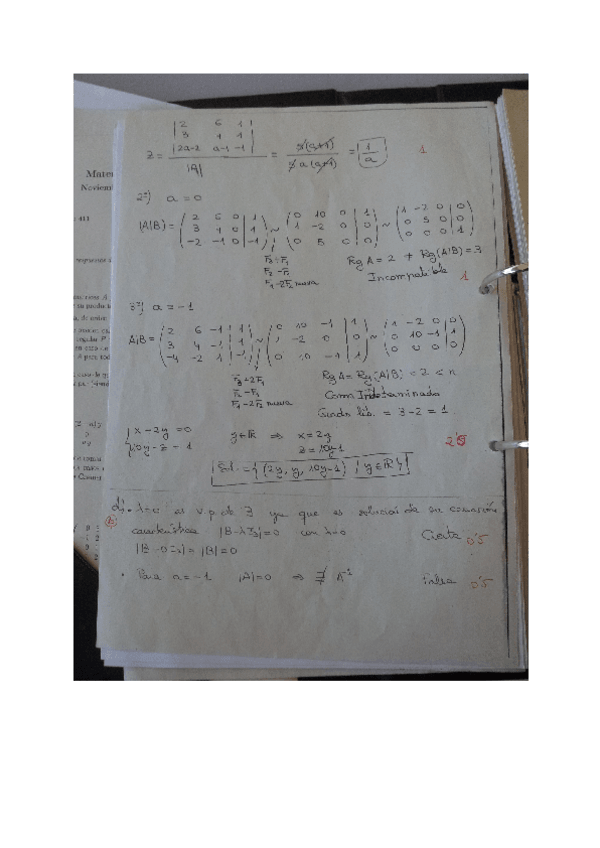 | 2 6 1 |
| 3 1 1 |
z = | 2a-2 a-1 -1 | / |A| = 2(a+1) / 2a(a+1) = 1/a 1
2º) a = 0
(A|B) = ( 2 6 0 | 1 ; 3 4 0 | 1 ; -2 -1 0 | -1 ) ~ ( 0 10 0 | 1 ; 1 -2 0 | 0 ; 0 5 0 | 0 ) ~ ( 1 -2 0 | 0 ; 0 5 0 | 0 ; 0 0 0 | 1 )
F3+F1
F2-F1
F1-2F2 nueva
Rg A = 2 ≠ Rg(A|B) = 3
Incompatible 1
3º) a = -1
A|B = ( 2 6 -1 | 1 ; 3 4 -1 | 1 ; -4 -2 1 | -1 ) ~ ( 0 10 -1 | 1 ; 1 -2 0 | 0 ; 0 10 -1 | 1 ) ~ ( 1 -2 0 | 0 ; 0 10 -1 | 1 ; 0 0 0 | 0 )
F3+2F1
F2-F1
F1-2F2 nueva
Rg A = Rg(A|B) = 2 < n
Com Indeterminado
Grado lib. = 3-2 = 1
x-2y = 0
10y-z = 1
y∈ℝ ⇒ x = 2y
z = 10y-1
2'5
Sol. = { (2y, y, 10y-1) / y∈ℝ }
λ=0 es v.p. de B ya que es solución de su ecuación
b)
característica |B-λI3| = 0 con λ=0 Cierta 0'5
|B-0I3| = |B| = 0
· Para a = -1 |A| = 0 ⇒ ∄ A⁻¹ Falsa 0'5
Mate
Noviem